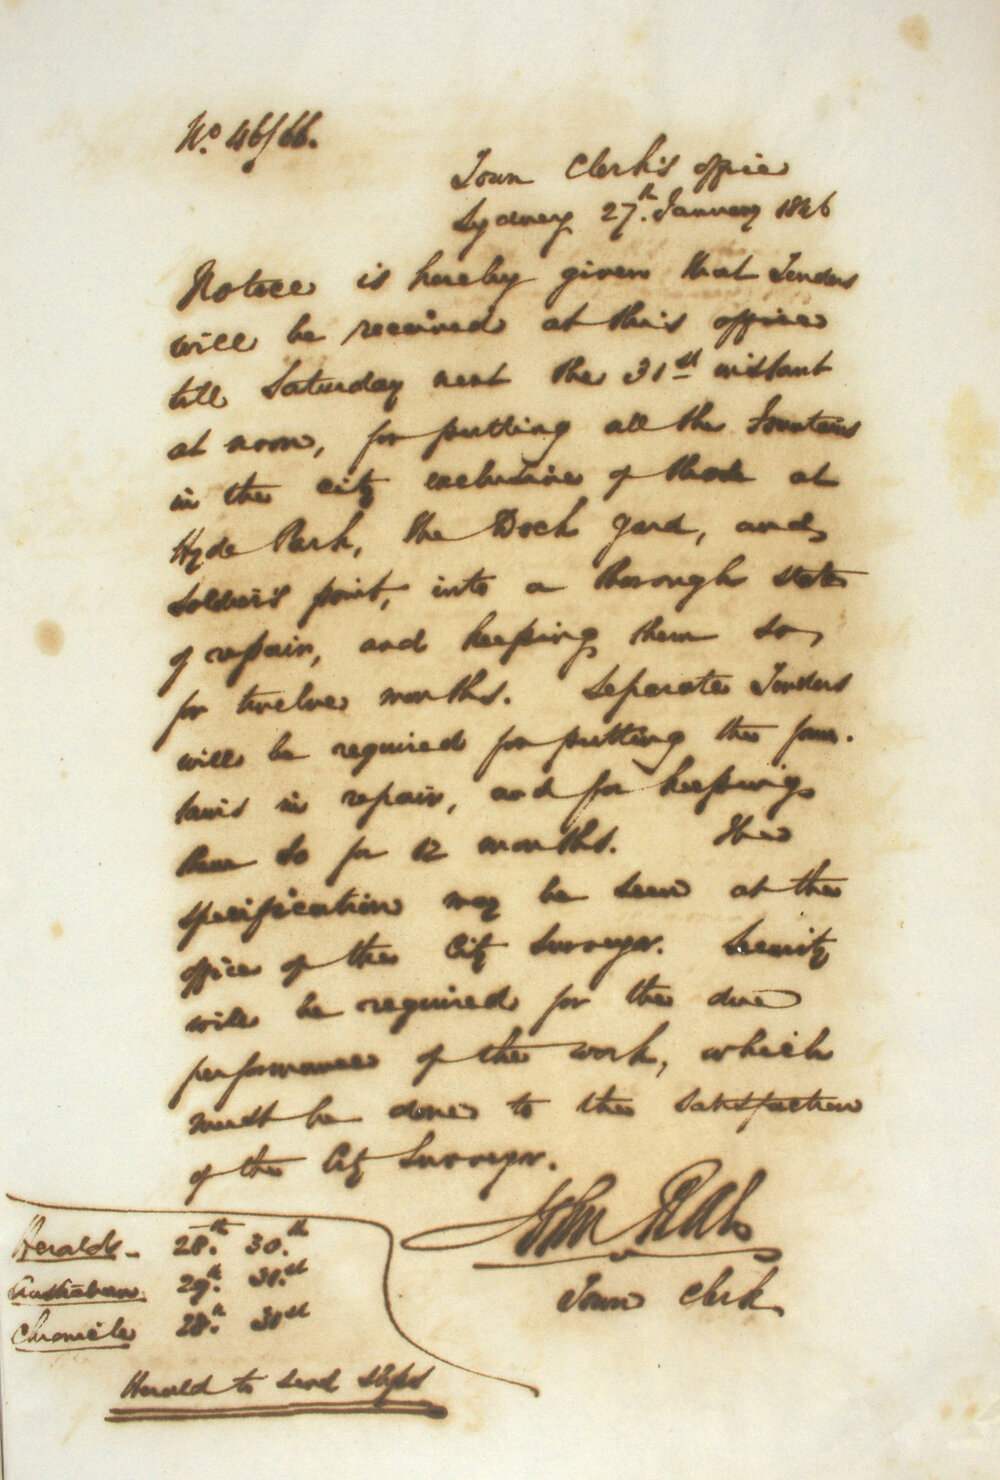 No. 46/66.
Town Clerk's office
Sydney 27th. January 1846
Notice is hereby given that Tenders
will be received at this office
till Saturday next the 31st instant
at noon, for putting all the Fountains
in the city exclusive of those at
Hyde Park, the Dock yard, and
Soldier's point, into a thorough state
of repair, and keeping them so,
for twelve months. Separate Tenders
will be required for putting the foun-
tains in repair, and for keeping
them so for 12 months. The
specification may be seen at the
office of the City Surveyor. Security
will be required for the due
performance of the work, which
must be done to the satisfaction
of the City Surveyor.
John
Town Clerk
Herald - 28th. 30.th
Australian 29th. 31.st
Chronicle 28th. 31st
Herald to send slips